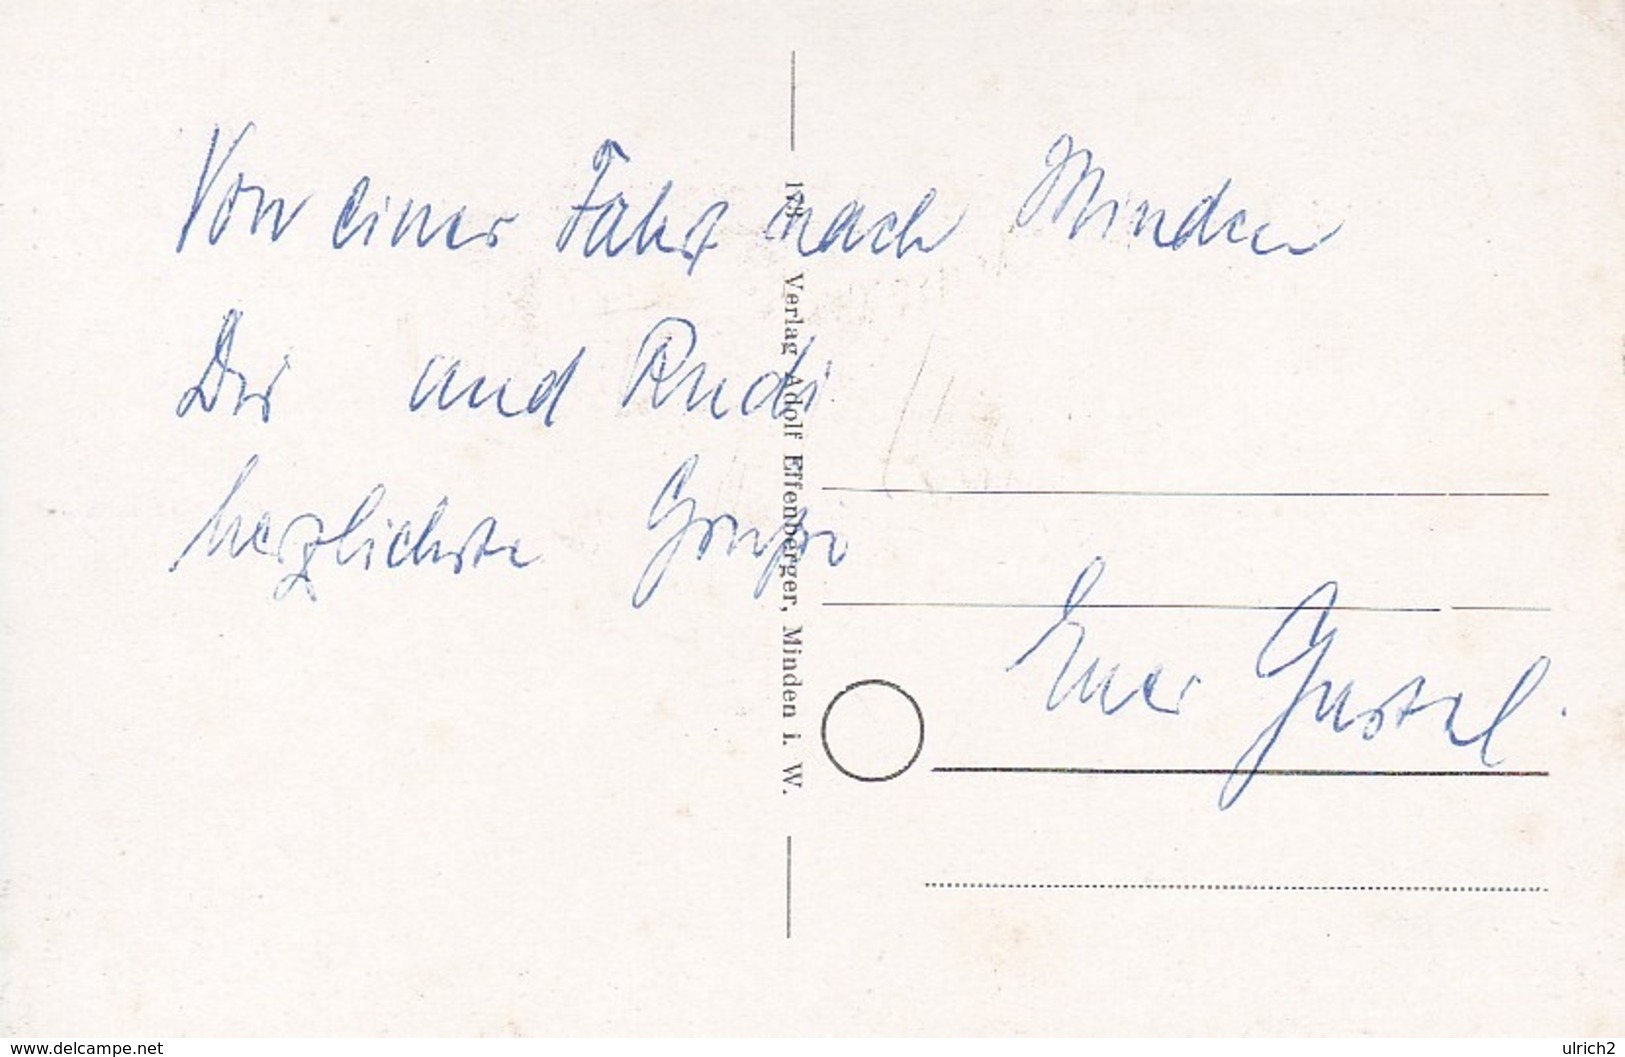 Von einer Fahrt nach Minden
Dir und Rudi
herzlichste Grüße
Euer Gustel.
Verlag Adolf Effenberger, Minden i. W.
www.delcampe.net
ulrich2